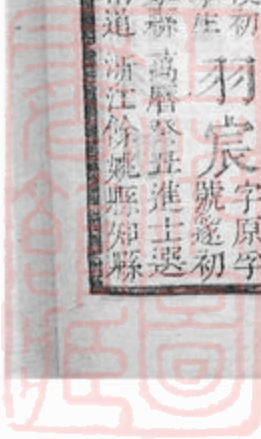 初
生
羽宸
字原
號遂初
縣 萬曆癸丑進士選
道 浙江餘姚縣知縣